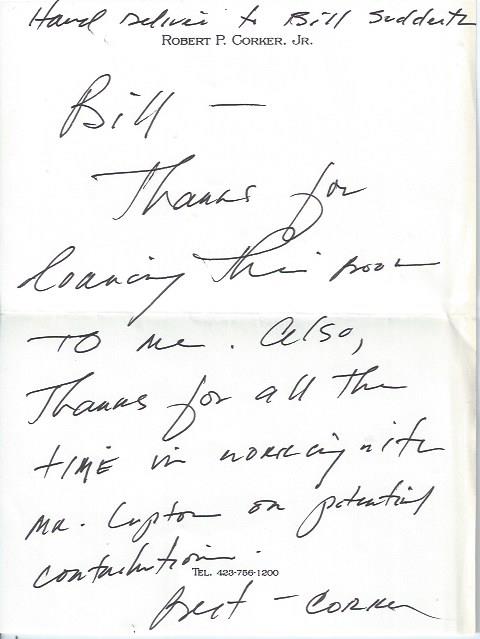 Hand Deliver to Bill Sudderth
ROBERT P. CORKER, JR.
Bill —
Thanks for
loaning this book
TO me. Also,
Thanks for all the
TIME in working with
Mr. Lupton on potential
contribution.
TEL. 423-756-1200
Best - CORKER